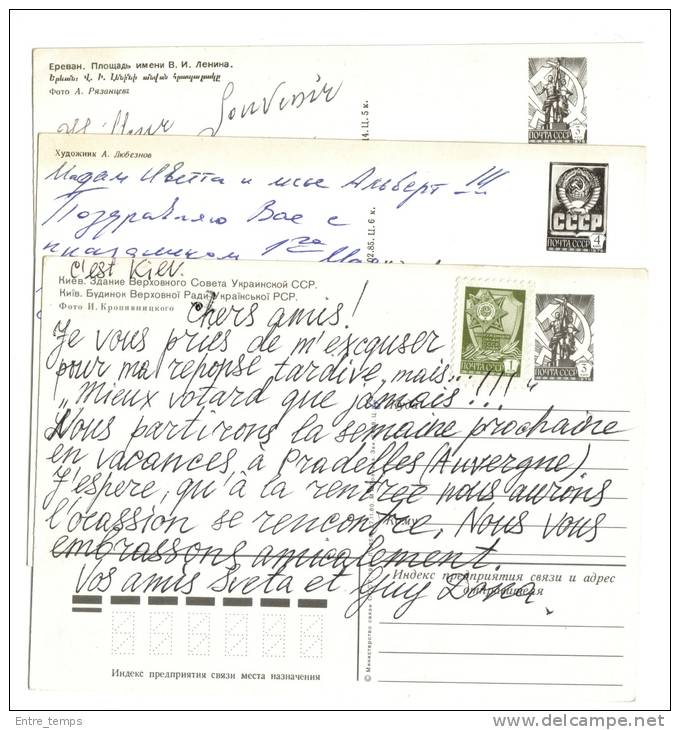 Ереван. Площадь имени В. И. Ленина.
Երևան: Վ. Ի. Լենինի անվան հրապարակը
Фото А. Рязанцева
Souvenir
14. Ц. 5 к.
ПОЧТА СССР 3
Художник А. Любезнов
Мадам Иветта и мсье Альберт !!!
Поздравляю Вас с
1го
2.85. Ц. 6 к.
СССР
ПОЧТА СССР 4
c'est Kiev.
Київ. Здание Верховного Совета Украинской ССР.
Київ. Будинок Верховної Ради Української РСР.
Фото И. Кропивницкого
Chers amis!
Je vous pries de m'excquser
pour ma reponse tardive, mais...
„Mieux votard que jamais!!!"
Nous partirons la semaine prochaine
en vacances à Pradelles (Auvergne)
J'espere, qu'à la rentrée nous aurons
l'ocassion se rencontre. Nous vous
embrassons amicalement.
Vos amis Sveta et Guy
ПОЧТА СССР 1
ПОЧТА СССР 3
Куда
Кому
Индекс предприятия связи и адрес
отправителя
Индекс предприятия связи места назначения
© Министерство связи
Entre_temps
http://www.delcampe.net